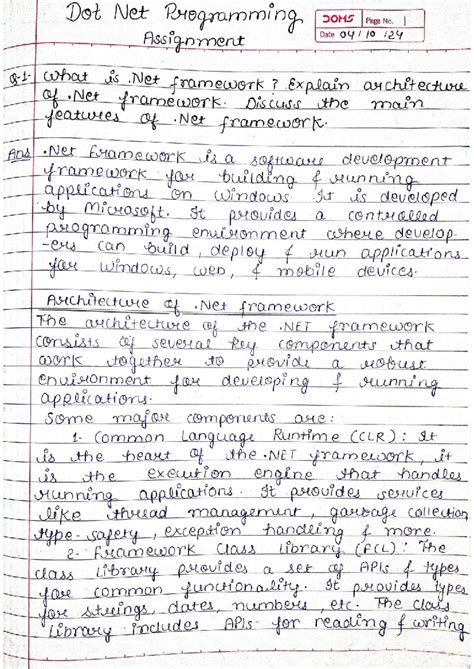 Dot Net Programming
Assignment
DOMS Page No. 1
Date 04/10/24
Q-1 What is .Net framework? Explain architecture
of .Net framework. Discuss the main
features of .Net framework.
Ans .Net framework is a software development
framework for building & running
applications on Windows. It is developed
by Microsoft. It provides a controlled
programming environment where develop-
-ers can build, deploy & run applications
for windows, web, & mobile devices.
Architecture of .Net framework
The architecture of the .NET framework
consists of several key components that
work together to provide a robust
environment for developing & running
applications.
Some major components are:
1- Common Language Runtime (CLR): It
is the heart of the .NET framework, it
is the execution engine that handles
running applications. It provides services
like thread management, garbage collection
type-safety, exception handling & more.
2- Framework Class Library (FCL): The
class library provides a set of APIs & types
for common functionality. It provides types
for strings, dates, numbers, etc. The class
library includes APIs for reading & writing